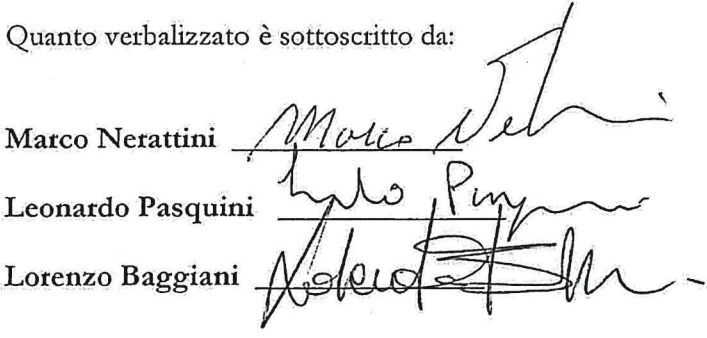 Quanto verbalizzato è sottoscritto da:
Marco Nerattini Marco
Leonardo Pasquini
Lorenzo Baggiani